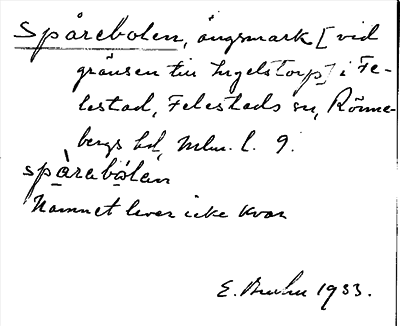 Spårebolen, ängsmark [vid
gränsen till Ingelstorp] i Fe-
lestad, Felestads sn, Rönne-
bergs hd, Mlm. l. 9.
spàrabólen
Namnet lever icke kvar
E. Bruhn 1933.